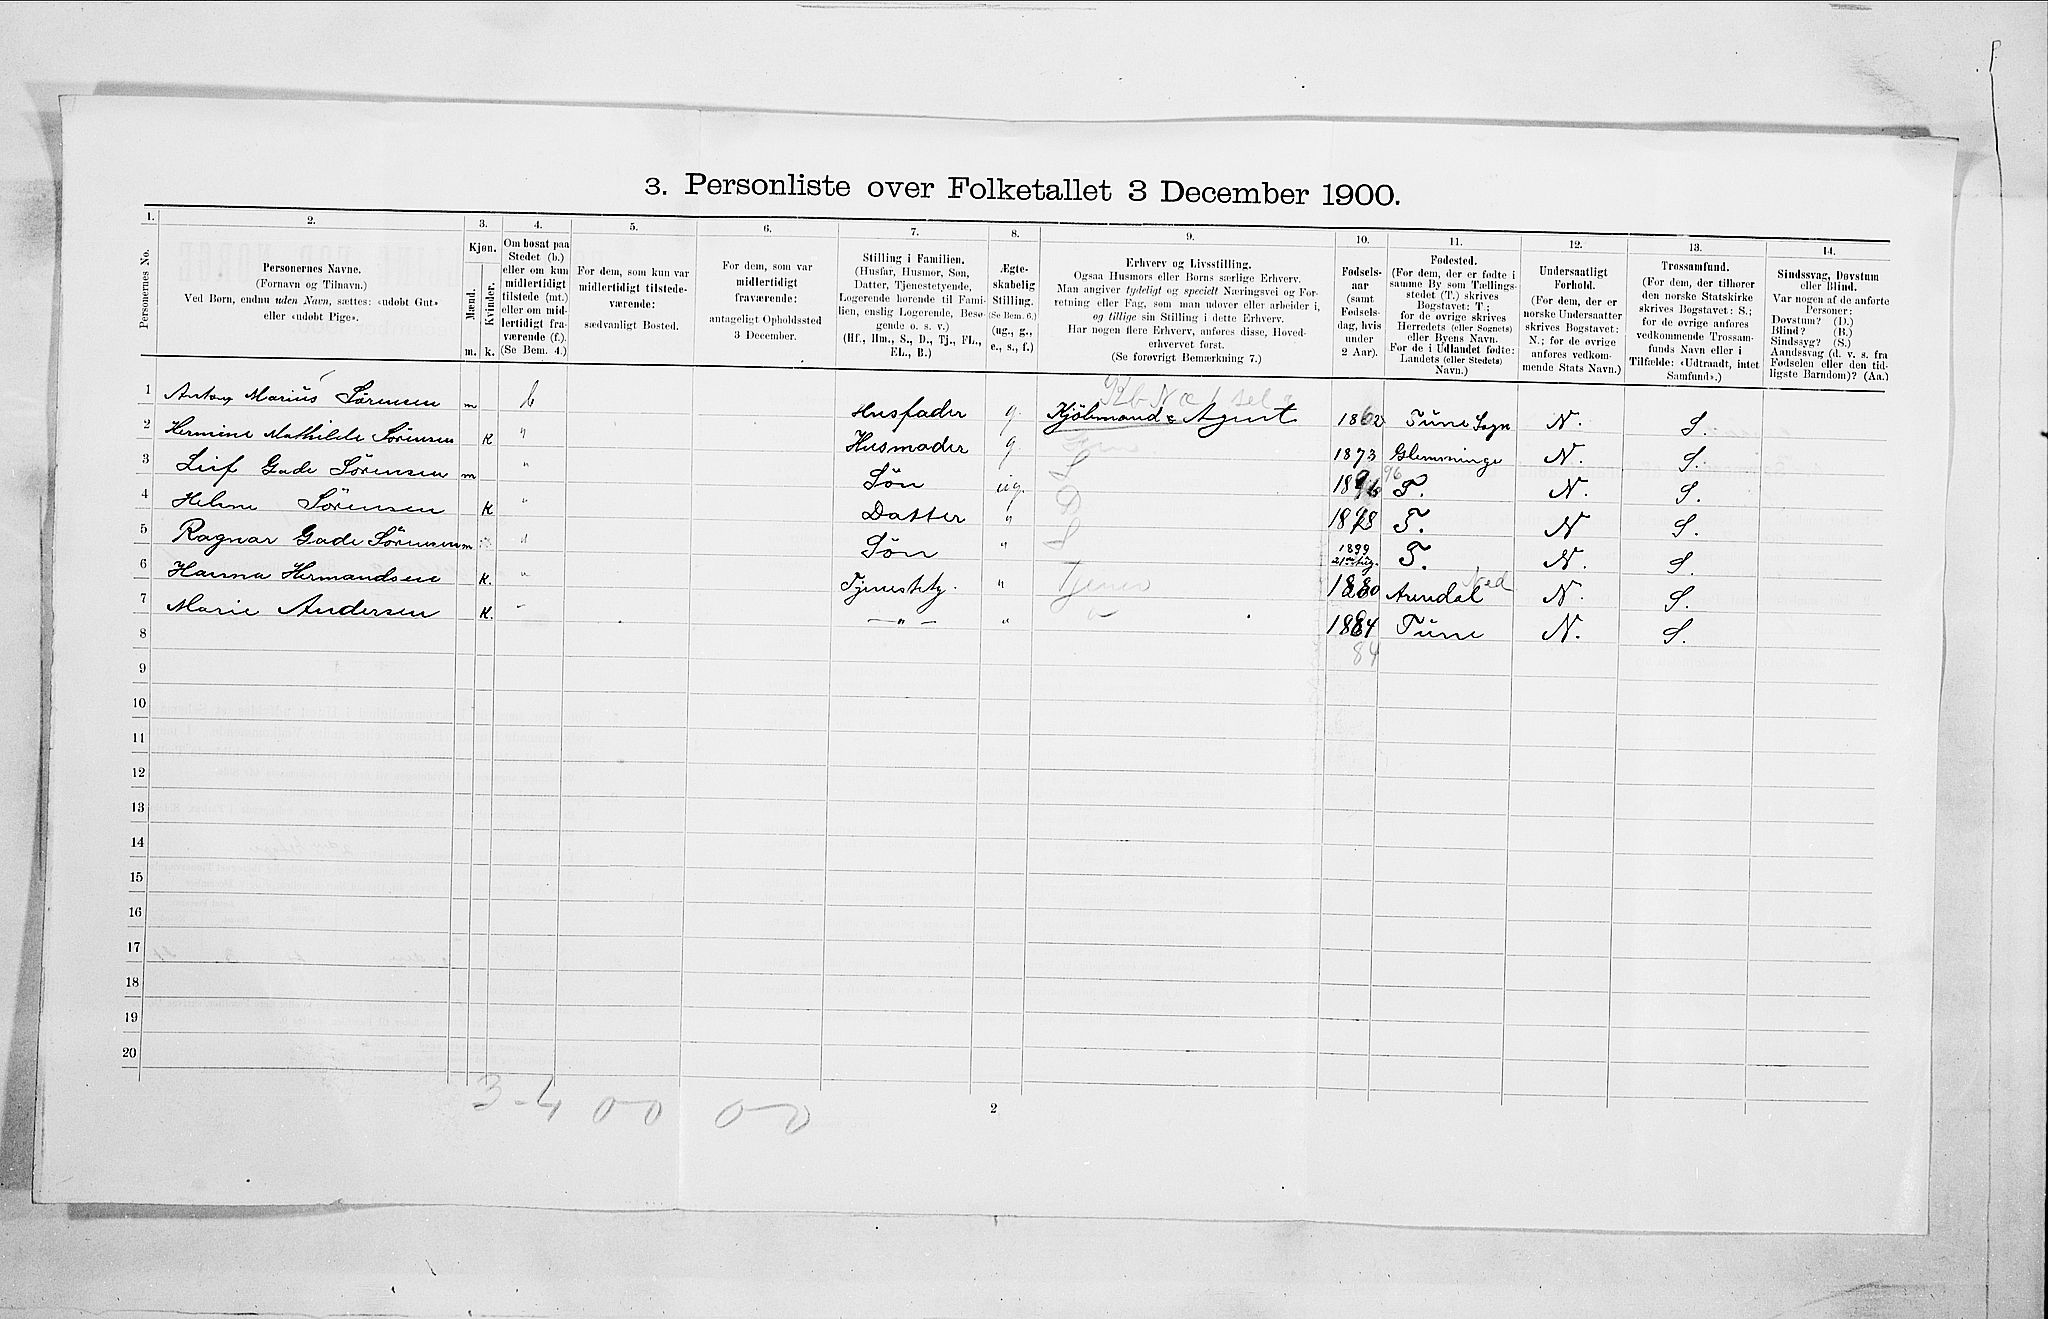 3. Personliste over Folketallet 3 December 1900.
1. 2. 3. 4. 5. 6. 7. 8. 9. 10. 11. 12. 13. 14.
Personernes No.
Personernes Navne.
(Fornavn og Tilnavn.)
Ved Børn, endnu uden Navn, sættes: «udøbt Gut»
eller «udøbt Pige».
Kjøn.
Mænd.
Kvinder.
m. k.
Om bosat paa
Stedet (b.)
eller om kun
midlertidigt
tilstede (mt.)
eller om mid-
lertidigt fra-
værende (f.).
(Se Bem. 4.)
For dem, som kun var
midlertidigt tilstede-
værende:
sædvanligt Bosted.
For dem, som var
midlertidigt
fraværende:
antageligt Opholdssted
3 December.
Stilling i Familien.
(Husfar, Husmor, Søn,
Datter, Tjenestetyende,
Logerende hørende til Fami-
lien, enslig Logerende, Besø-
gende o. s. v.)
(Hf., Hm., S., D., Tj., FL.,
EL., B.)
Ægte-
skabelig
Stilling.
(Se Bem. 6.)
(ug., g.,
e., s., f.)
Erhverv og Livsstilling.
Ogsaa Husmors eller Børns særlige Erhverv.
Man angiver tydeligt og specielt Næringsvei og For-
retning eller Fag, som man udøver eller arbeider i,
og tillige sin Stilling i dette Erhverv.
Har nogen flere Erhverv, anføres disse, Hoved-
erhvervet først.
(Se forøvrigt Bemærkning 7.)
Fødsels-
aar
(samt
Fødsels-
dag, hvis
under
2 Aar).
Fødested.
(For dem, der er fødte i
samme By som Tællings-
stedet (T.) skrives
Bogstavet: T;
for de øvrige skrives
Herredets (eller Sognets)
eller Byens Navn.
For de i Udlandet fødte:
Landets (eller Stedets)
Navn.)
Undersaatligt
Forhold.
(For dem, der er
norske Undersaatter
skrives Bogstavet:
N.; for de øvrige
anføres vedkom-
mende Stats Navn.)
Trossamfund.
(For dem, der tilhører
den norske Statskirke
skrives Bogstavet: S.;
for de øvrige anføres
vedkommende Trossam-
funds Navn eller i
Tilfælde: «Udtraadt, intet
Samfund».)
Sindssvag, Døvstum
eller Blind.
Var nogen af de anførte
Personer:
Døvstum? (D.)
Blind? (B.)
Sindssyg? (S.)
Aandssvag (d. v. s. fra
Fødselen eller den tid-
ligste Barndom)? (Aa.)
1 Anton Marius Sørensen m b Husfader g. Kjöbmand & Agent 1862 Tune Sogn N. S.
2 Hermine Mathilde Sørensen K " Husmoder g. 1873 Glemminge N. S.
3 Leif Gade Sørensen m " Søn ug. S 1896 96 T. N. S.
4 Helene Sørensen K " Datter " D 1898 T. N S.
5 Ragnar Gade Sørensen m " Søn " S 1899 21 Aug. T. N. S.
6 Hanna Hermandsen K. " Tjenestety. " Tjener 1880 Arendal N. S.
7 Marie Andersen K. " —"— " " 1884 Tune N. S.
8 84
9
10
11
12
13
14
15
16
17
18
19
20
3-4 0 0 0 0
2